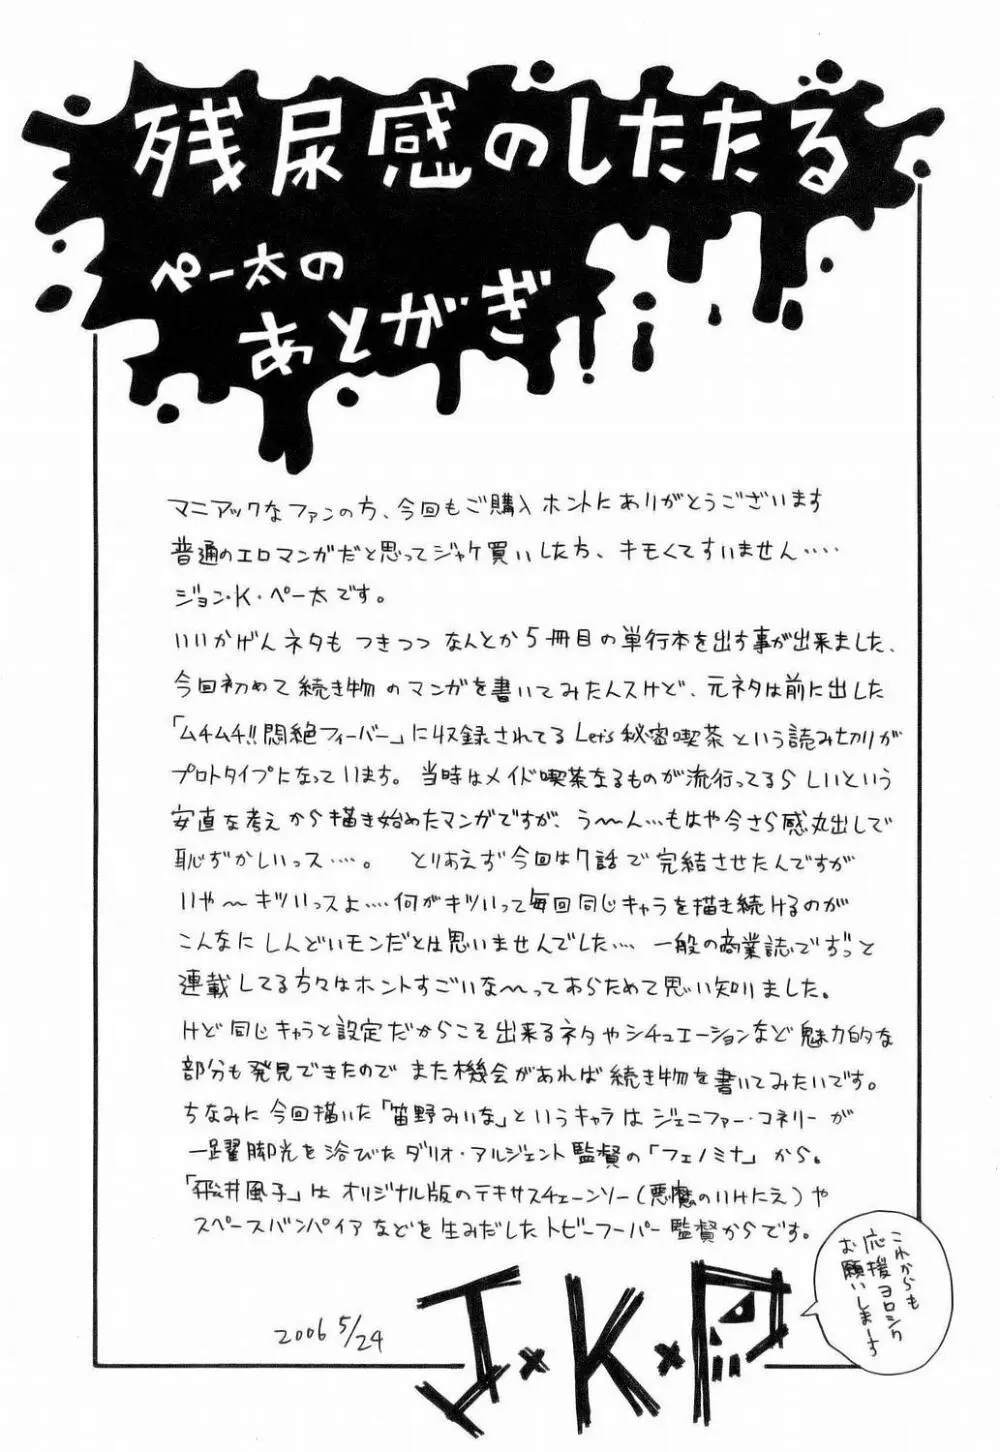 残尿感のしたたる
ペー太の
あとがき
マニアックなファンの方、今回もご購入ホントにありがとうございます
普通のエロマンガだと思ってジャケ買いした方、キモくてすいません‥‥
ジョン・K・ペー太です。
いいかげんネタもつきつつなんとか5冊目の単行本を出す事が出来ました、
今回初めて続き物のマンガを書いてみたんスけど、元ネタは前に出した
「ムチムチ!!悶絶フィーバー」に収録されてるLet's秘密喫茶という読み切りが
プロトタイプになっています。当時はメイド喫茶なるものが流行ってるらしいという
安直な考えから描き始めたマンガですが、う〜ん…もはや今さら感丸出しで
恥ずかしいっス‥‥。とりあえず今回は7話で完結させたんですが
いや〜キツいっスよ‥‥何がキツいって毎回同じキャラを描き続けるのが
こんなにしんどいモンだとは思いませんでした‥‥一般の商業誌でずっと
連載してる方々はホントすごいな〜ってあらためて思い知りました。
けど同じキャラと設定だからこそ出来るネタやシチュエーションなど魅力的な
部分も発見できたのでまた機会があれば続き物を書いてみたいです。
ちなみに今回描いた「笛野みいな」というキャラはジェニファー・コネリーが
一躍脚光を浴びたダリオ・アルジェント監督の「フェノミナ」から。
「飛井風子」はオリジナル版のテキサスチェーンソー(悪魔のいけにえ)や
スペースバンパイアなどを生みだしたトビー・フーパー監督からです。
これからも
応援ヨロシク
お願いしまーす
2006 5/24
J×K×P